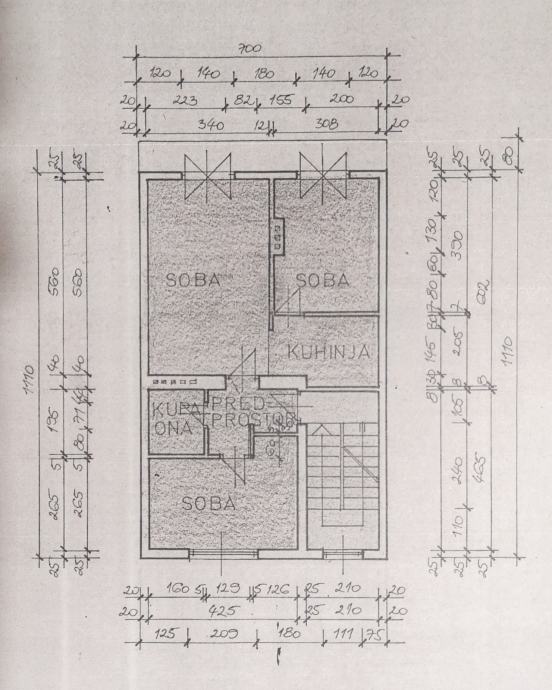 700
120 140 180 140 120
20 223 82 155 200 20
20 340 12 308 20
SOBA SOBA
KUHINJA
KUPA
ONA
PRED
PROSTOR
SOBA
25 25 25
560 560
40 40
1110
195 71
80
5 5
265 265
25 25 25
25 25 25 80
120
130 390
60
80 7
602
145 205 1110
30
8 8 8
105
240 465
110
25 25 25
20 160 5 129 5 126 25 210 20
20 425 25 210 20
125 209 180 111 75